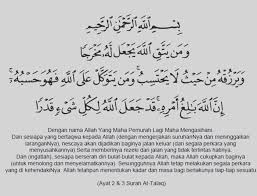 بِسْمِ اللَّهِ الرَّحْمَٰنِ الرَّحِيمِ
وَمَن يَتَّقِ اللَّهَ يَجْعَل لَّهُ مَخْرَجًا
وَيَرْزُقْهُ مِنْ حَيْثُ لَا يَحْتَسِبُ ۚ وَمَن يَتَوَكَّلْ عَلَى اللَّهِ فَهُوَ حَسْبُهُ ۚ
إِنَّ اللَّهَ بَالِغُ أَمْرِهِ ۚ قَدْ جَعَلَ اللَّهُ لِكُلِّ شَيْءٍ قَدْرًا
Dengan nama Allah Yang Maha Pemurah Lagi Maha Mengasihani.
Dan sesiapa yang bertaqwa kepada Allah (dengan mengerjakan suruhanNya dan meninggalkan
laranganNya), nescaya akan dijadikan baginya jalan keluar (dari segala perkara yang
menyusahkannya) Serta memberinya rezeki dari jalan yang tidak terlintas hatinya.
Dan (ingatlah), sesiapa berserah diri bulat-bulat kepada Allah, maka Allah cukuplah baginya
(untuk menolong dan menyelamatkannya). Sesungguhnya Allah tetap melakukan segala perkara
yang di kehendakiNya. Allah telahpun menentukan kadar dan masa bagi berlakunya tiap-tiap sesuatu
(Ayat 2 & 3 Surah At-Talaq)